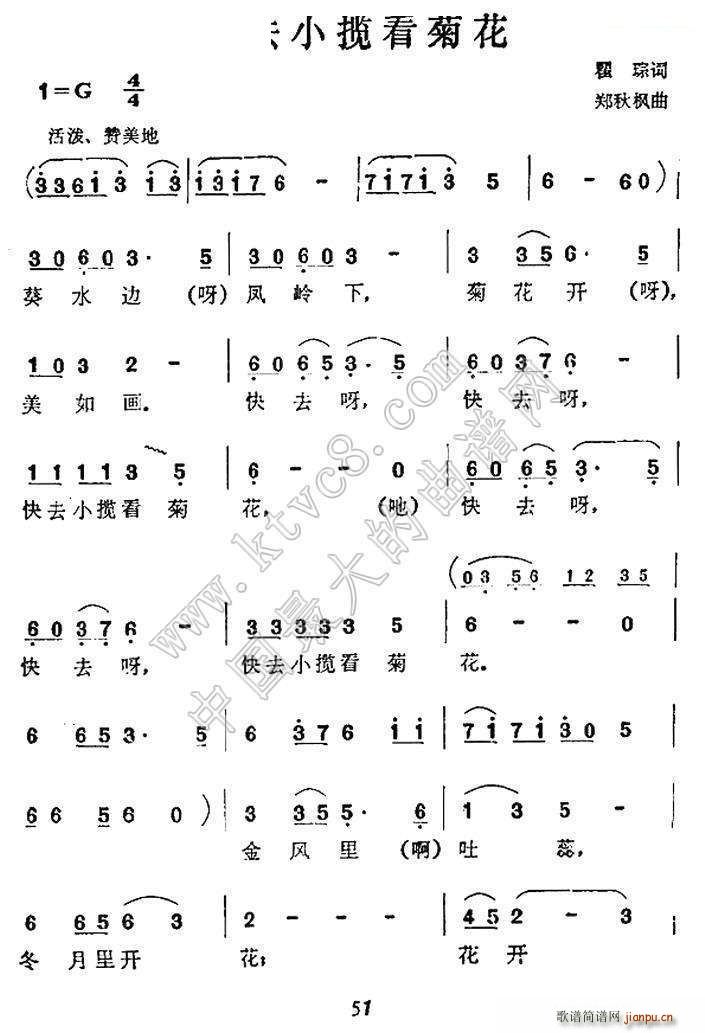 去小揽看菊花
瞿 琮词
1=G 4/4
郑秋枫曲
活泼、赞美地
(33613 13 | 13176 - | 717i3 5 6 - 60) |
30603· 5 | 30603 - | 3 356· 5 |
葵水边(呀)凤岭下, 菊花开(呀),
103 2 - | 60653· 5 | 60376 - |
美如画. 快去呀, 快去呀,
11113 5 | 6 - - 0 | 60653· 5 |
快去小揽看菊 花, (吔) 快去呀,
(03 56 12 35
60376 - | 33333 5 | 6 - - 0 |
快去呀, 快去小揽看菊 花.
6 653· 5 | 6 376 11 | 717130 5 |
66 56 0) | 3 355· 6 | 1 3 5 - |
金风里(啊)吐蕊,
6 6563 | 2 - - - | 452 - 3 |
冬月里开 花; 花开
51
www.ktvc8.com
中国最大的曲谱网
歌谱简谱网
jianpu.cn